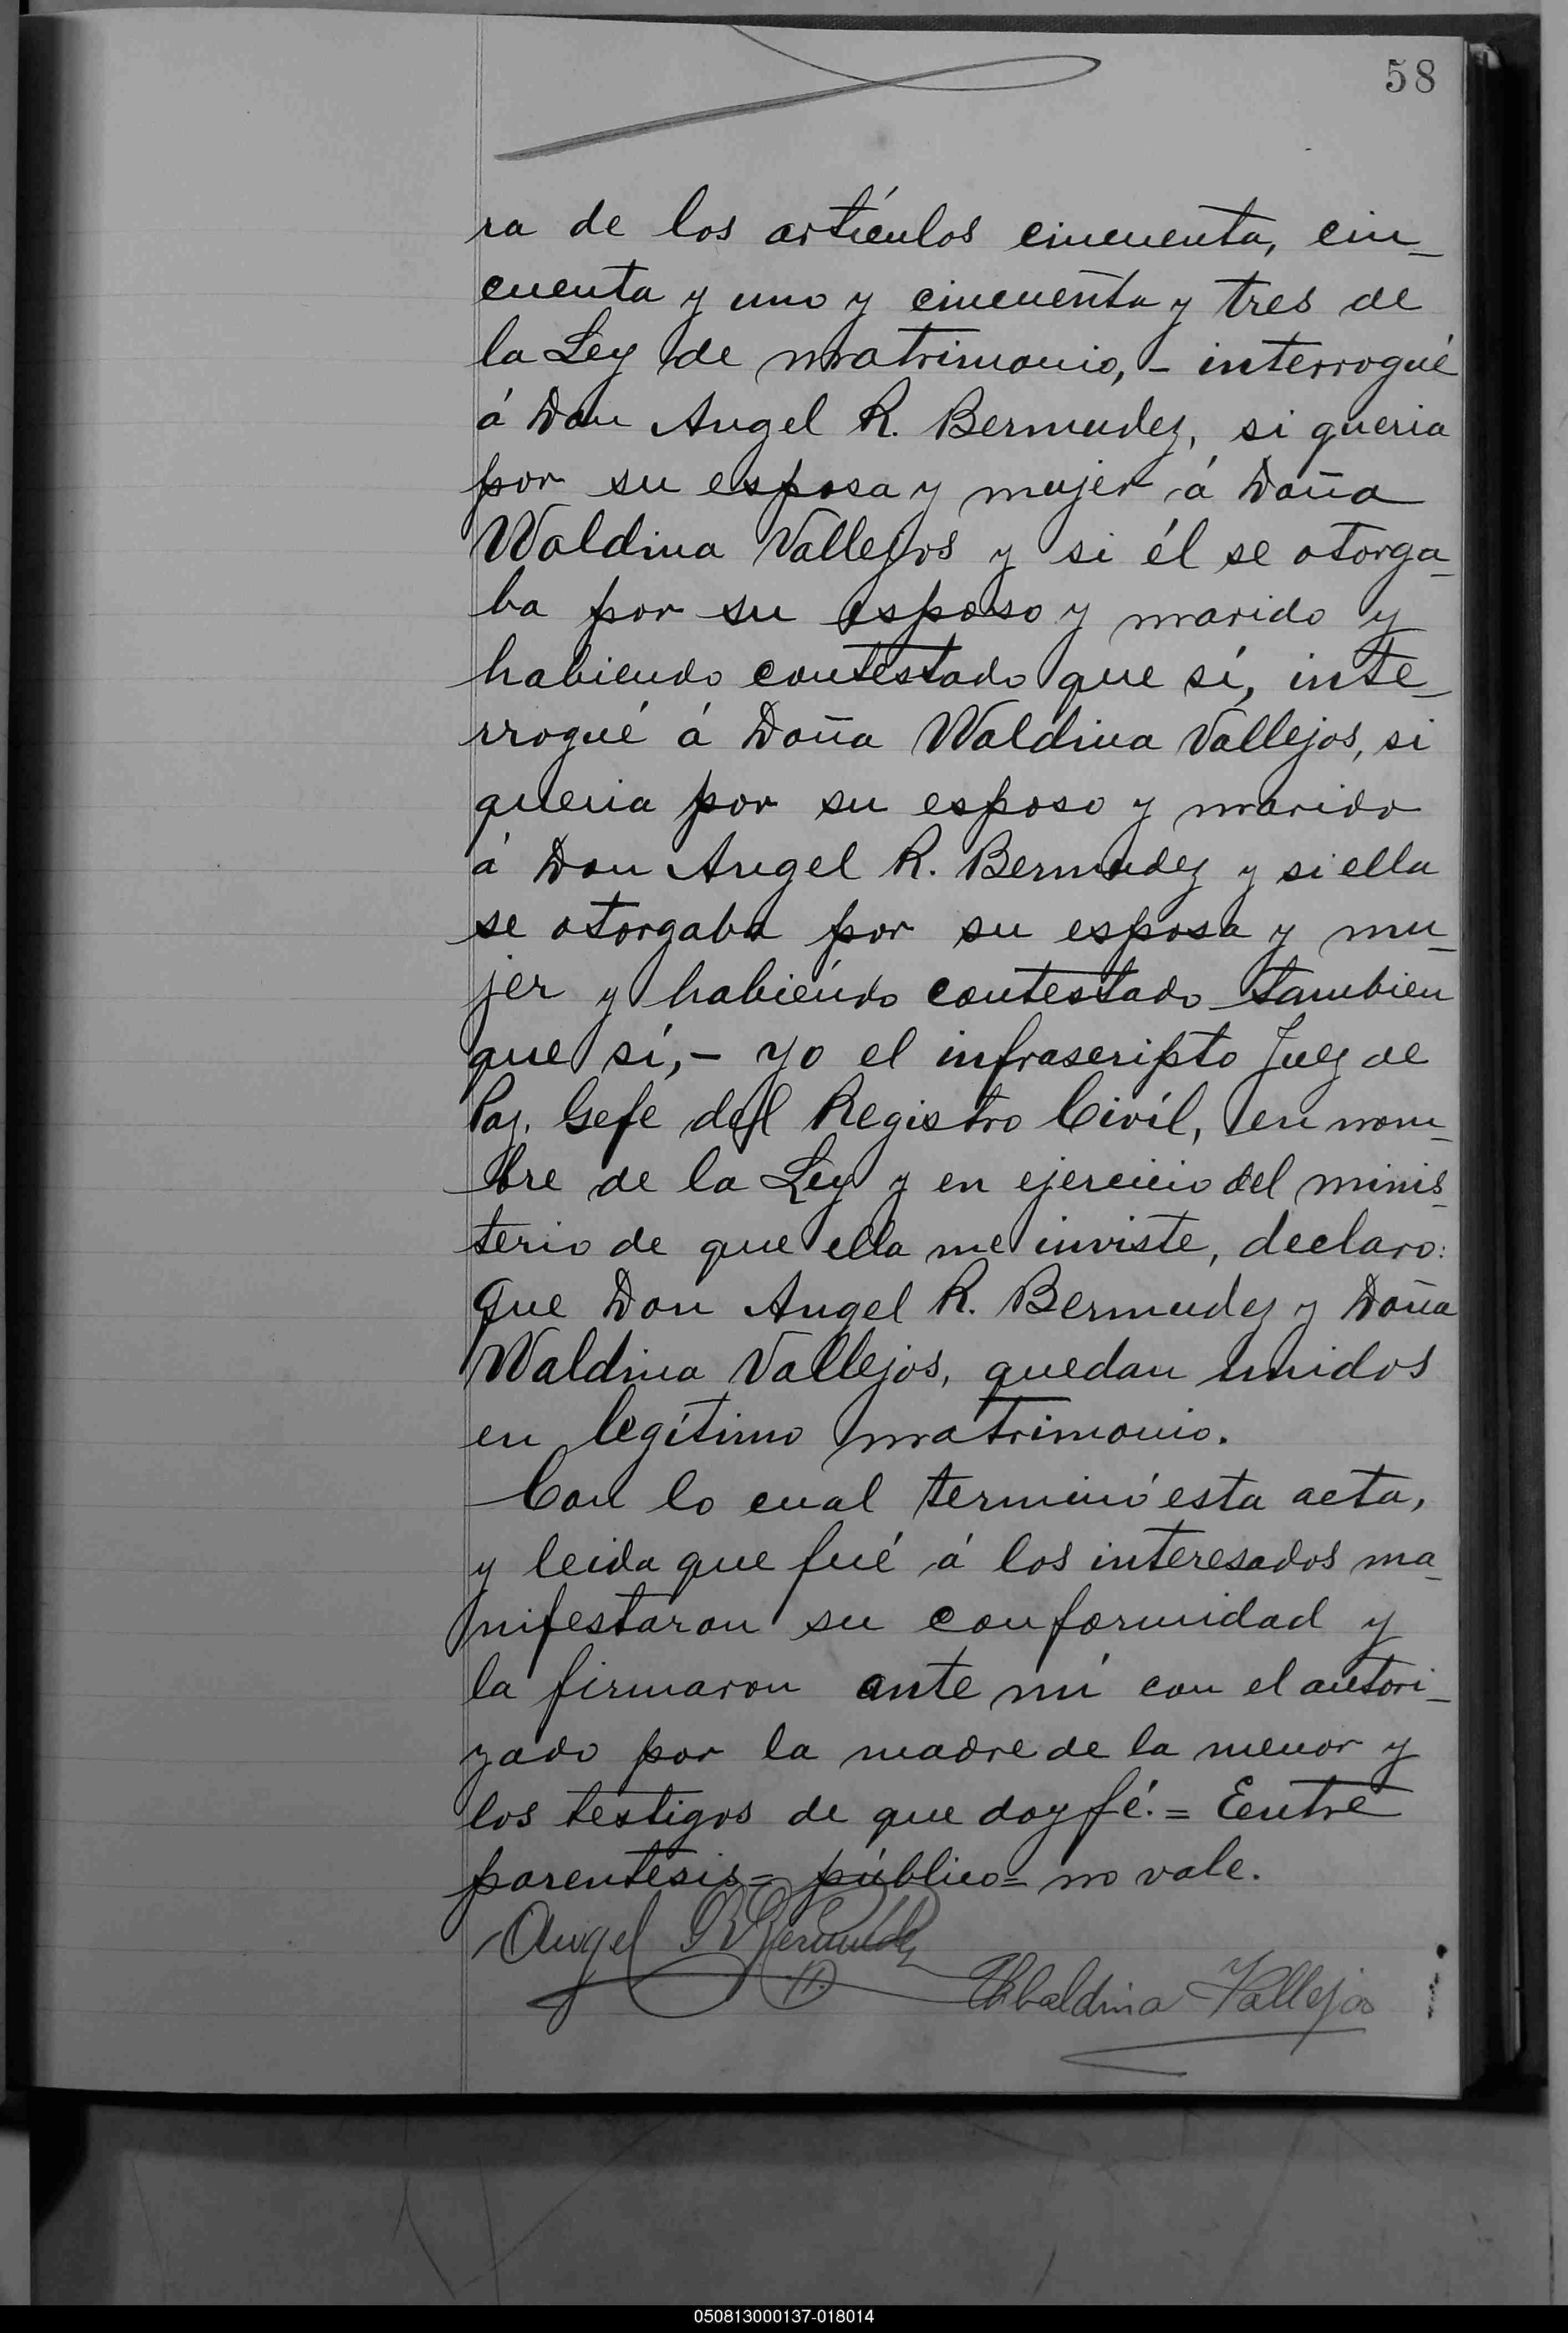 58
ra de los artículos cincuenta, cin_
cuenta y uno y cincuenta y tres de
la Ley de matrimonio, - interrogué
á Don Angel R. Bermudez, si queria
por su esposa y mujer á Doña
Waldina Vallejos y si él se otorga_
ba por su esposo y marido y
habiendo contestado que sí, inte_
rrogué á Doña Waldina Vallejos, si
queria por su esposo y marido
á Don Angel R. Bermudez y si ella
se otorgaba por su esposa y mu_
jer y habiendo contestado tambien
que sí, - yo el infrascripto Juez de
Paz, Gefe del Registro Civíl, en nom_
bre de la Ley y en ejercicio del minis_
terio de que ella me inviste, declaro:
que Don Angel R. Bermudez y Doña
Waldina Vallejos, quedan unidos
en legítimo matrimonio.
Con lo cual terminó esta acta,
y leida que fué á los interesados ma_
nifestaron su conformidad y
la firmaron ante mí con el autori_
zado por la madre de la menor y
los testigos de que doy fé. = Eentre
parentesis = público = no vale.
Angel R Bermudez
Ubaldina Vallejos
050813000137-018014